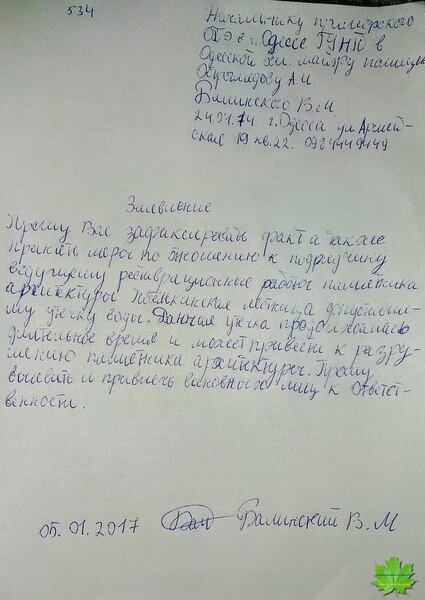 534
Начальнику приморского
ОП в г. Одессе ГУНП в
Одесской обл. майору полиции
А И.
Балинского В. М.
24.07.74 г. Одесса ул Армей-
ская 19 кв. 22. 0984449449
Заявление
Прошу Вас зафиксировать факт а также
принять меры по отношению к подрядчику
ведущему реставрационные работы памятника
архитектуры Потемкинская лестница допустивше-
му утечку воды. Данная утечка продолжалась
длительное время и может привести к разру-
шению памятника архитектуры. Прошу
выявить и привлечь виновных лиц к ответст-
венности.
05.01.2017 Балинский В. М